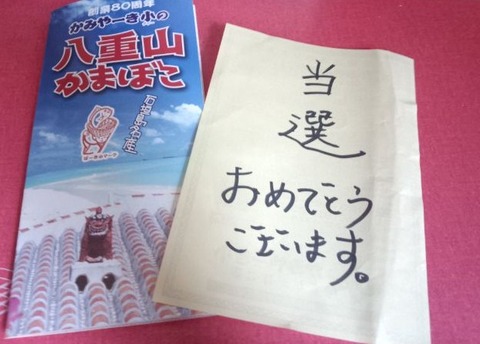 創業80周年
かみやーき小の
八重山
かまぼこ
石垣島名産
当
選
おめでとう
ございます。